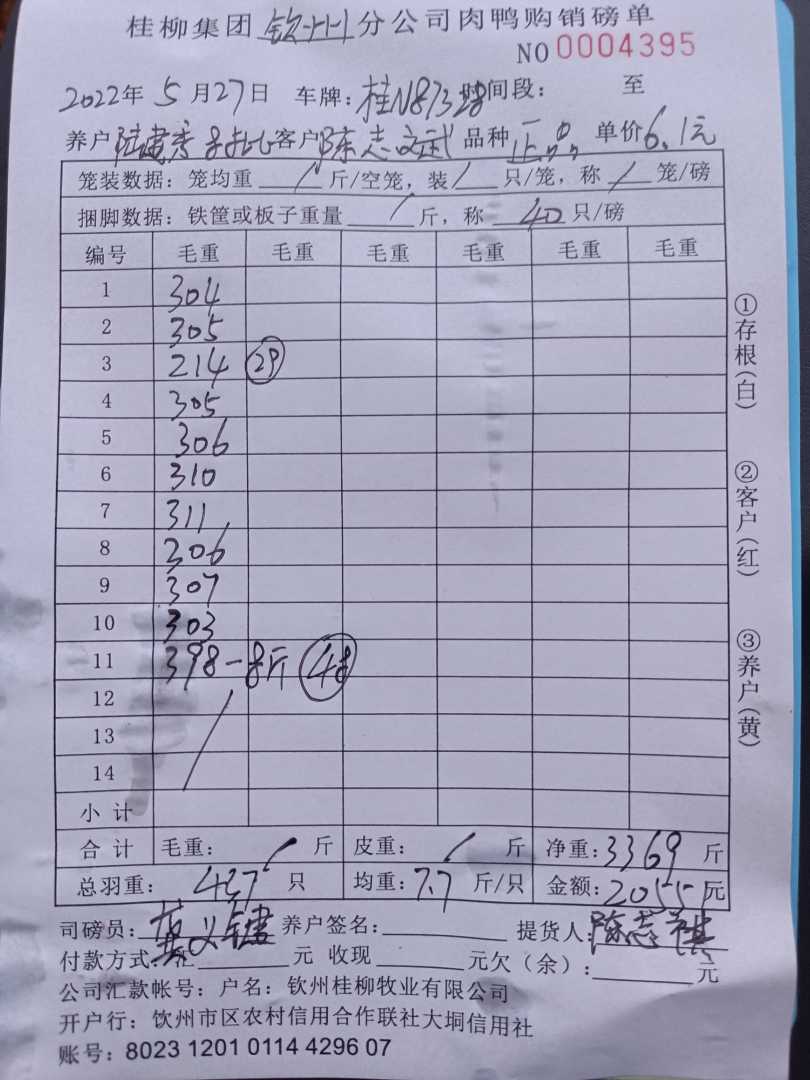 桂柳集团钦州分公司肉鸭购销磅单
NO 0004395
2022年5月27日 车牌:桂N87328 时间段: 至
养户 陆建秀 客户 陈志武 品种 正品 单价6.1元
笼装数据:笼均重 / 斤/空笼,装 / 只/笼,称 / 笼/磅
捆脚数据:铁筐或板子重量 / 斤,称 40 只/磅
编号 毛重 毛重 毛重 毛重 毛重 毛重
1 304
2 305
3 214 29
4 305
5 306
6 310
7 311
8 306
9 307
10 303
11 398-8斤 48
12
13
14
小计
合计 毛重: / 斤 皮重: / 斤 净重:3369 斤
总羽重: 437 只 均重:7.7 斤/只 金额:20551元
司磅员: 养户签名: 提货人:陈志祺
付款方式:汇 元 收现 元欠(余): 元
公司汇款帐号:户名:钦州桂柳牧业有限公司
开户行:饮州市区农村信用合作联社大垌信用社
账号:8023 1201 0114 4296 07
①存根(白)
②客户(红)
③养户(黄)